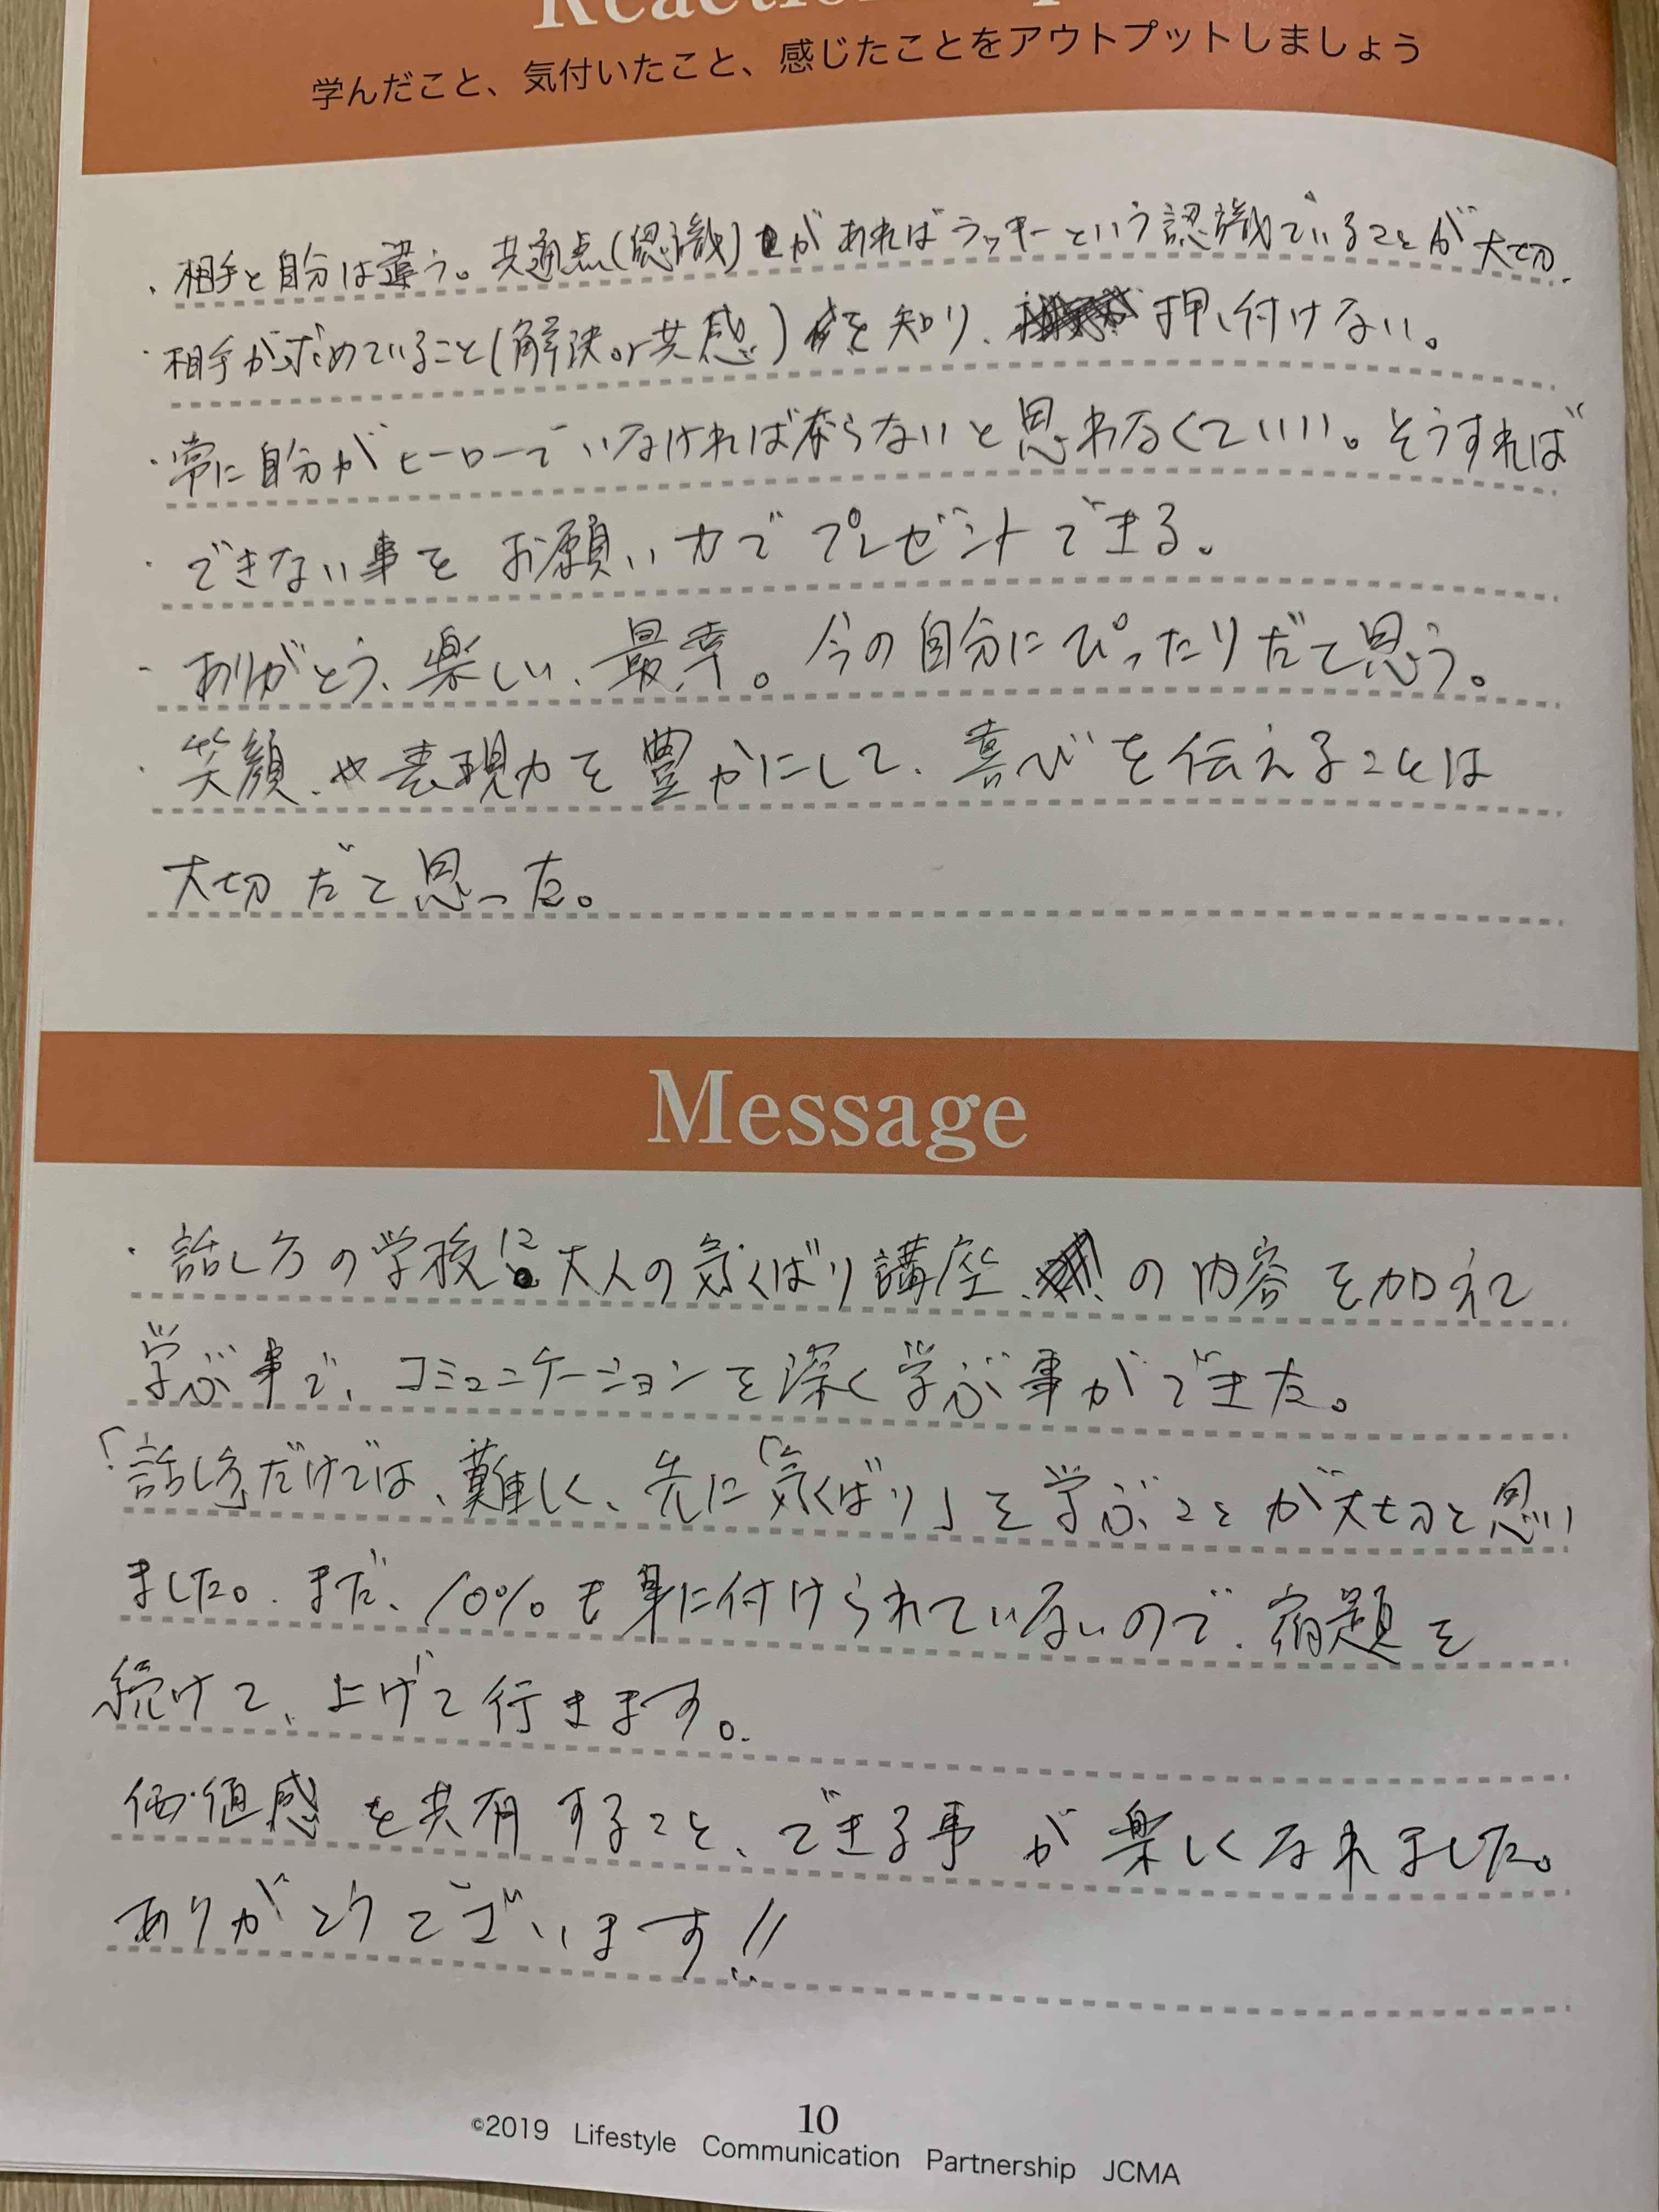 学んだこと、気付いたこと、感じたことをアウトプットしましょう
・相手と自分は違う。共通点(認識)があればラッキーという認識でいることが大切.
・相手が求めていること(解決or共感)を知り、押し付けない。
・常に自分がヒーローでいなければ奈らないと思わなくていい。そうすれば
・できない事をお願い力でプレゼントできる。
・ありがとう、楽しい、最幸。今の自分にぴったりだと思う。
・笑顔や表現力を豊かにして、喜びを伝えることは
大切だと思った。
Message
・話し方の学校に大人の気くばり講座の内容を加えて
学ぶ事で、コミュニケーションを深く学ぶ事ができた。
「話し方だけでは、難しく、先に「気くばり」を学ぶことが大切と思い
ました。まだ、10%も身に付けられていないので、宿題を
続けて、上げて行きます。
価値感を共有すること、できる事が楽しくなれました。
ありがとうございます!!
10
©2019 Lifestyle Communication Partnership JCMA